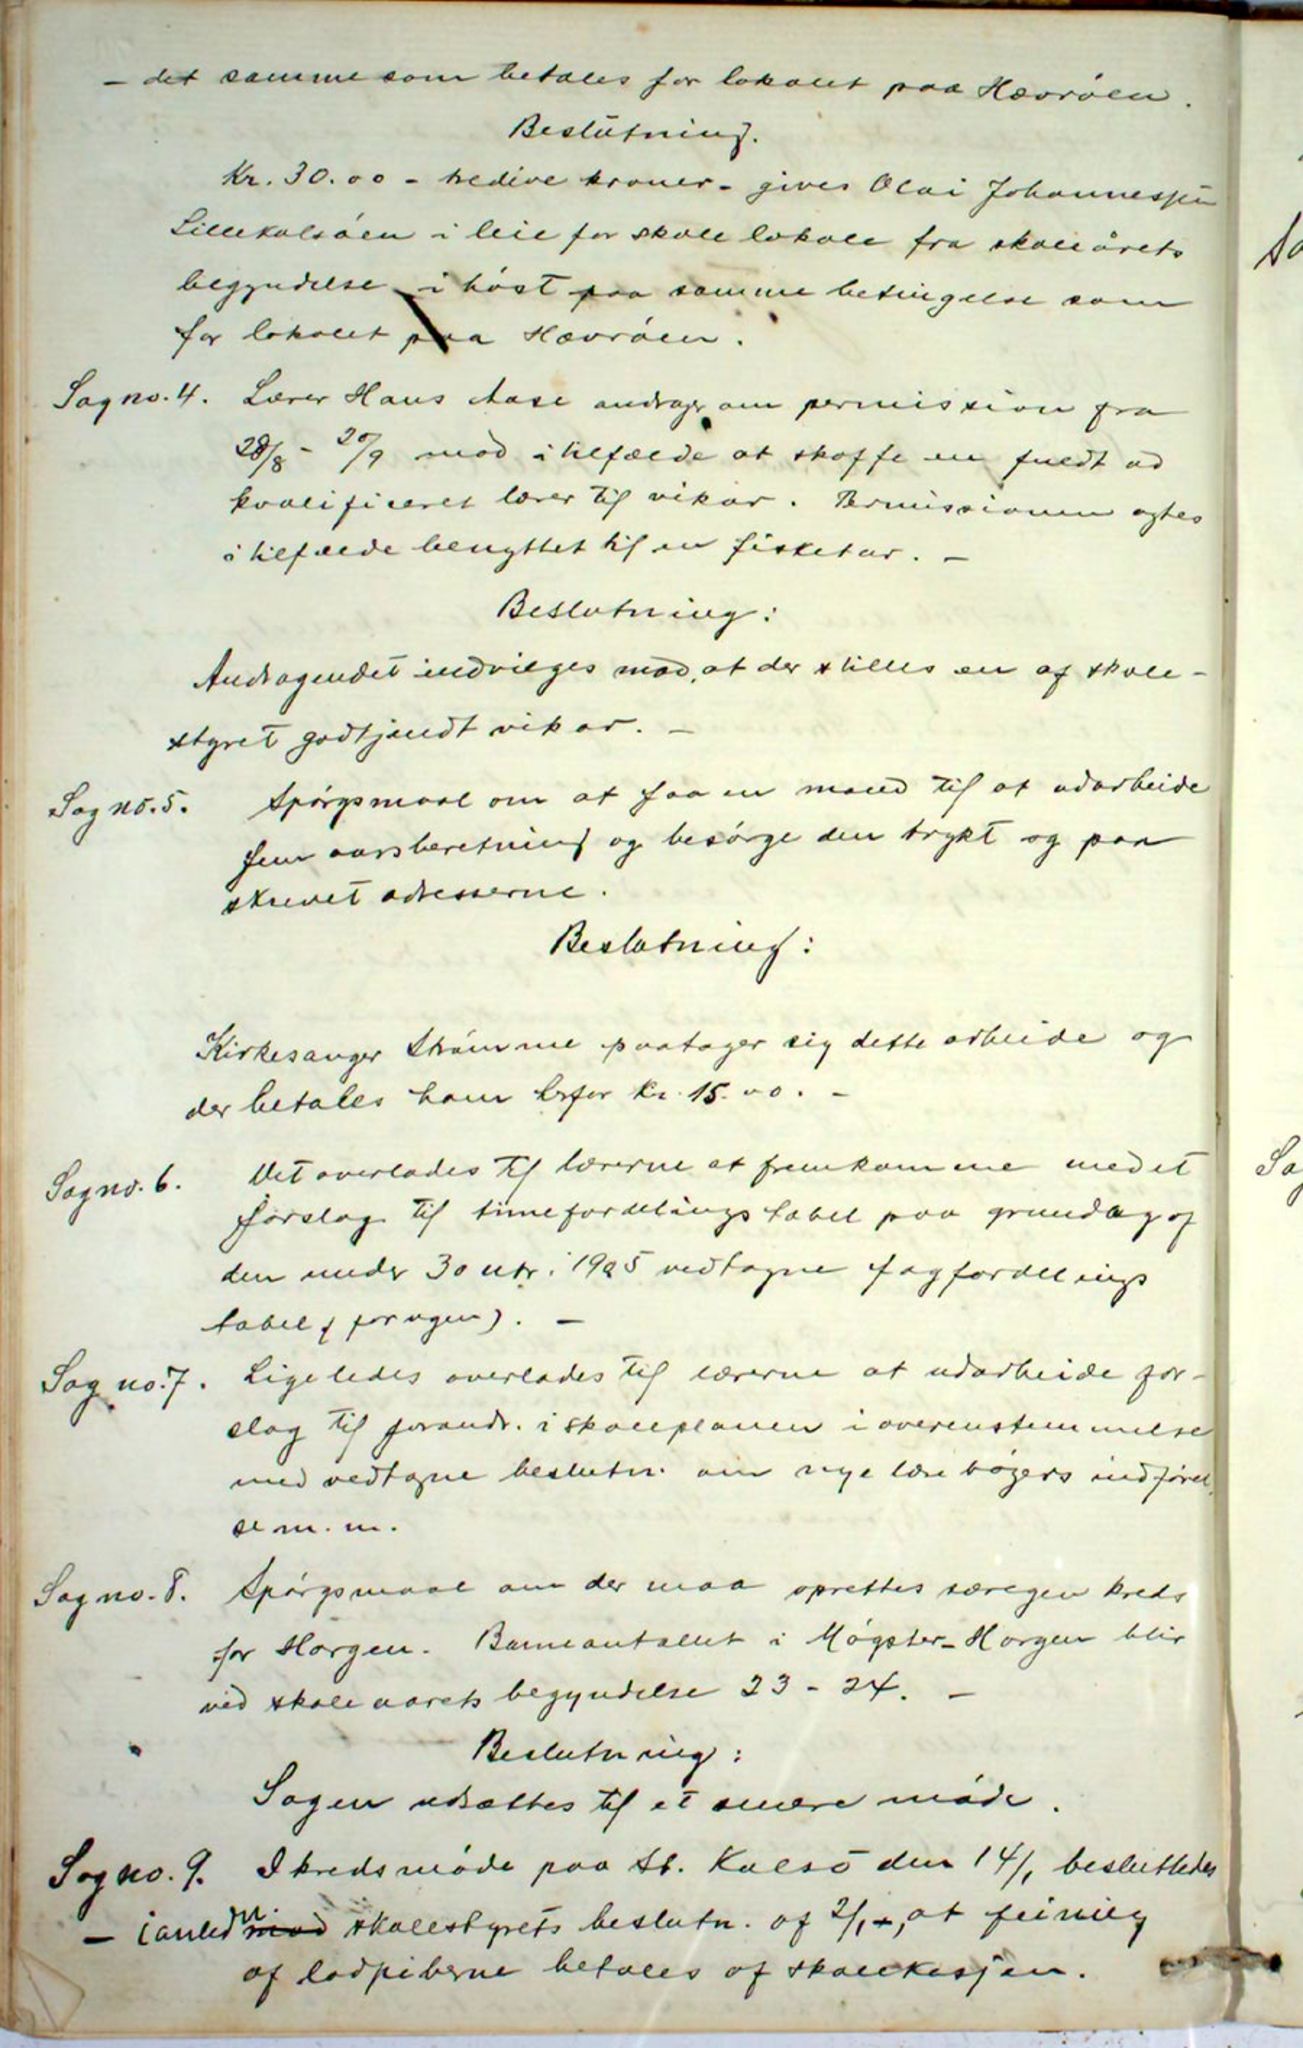 - det samme som betales for lokalet paa Hævröen.
Beslutning.
Kr. 30.00 - tredive kroner - gives Olai Johannessen
Lillekalsöen i leie for skolelokale fra skoleårets
begyndelse i höst paa samme betingelse som
for lokalet paa Hævröen.
Sag no. 4. Lærer Hans Aase andrager om permission fra
28/8 - 20/9 mod i tilfælde at skaffe en fuldt ud
kvalificeret lærer til vikar. Permissionen agtes
i tilfælde benyttet til en fisketur. -
Beslutning:
Andragendet indvilges mod, at der stilles en af skole-
styret godkjendt vikar. -
Sag no. 5. Spörgsmaal om at faa en mand til at udarbeide
fem aarsberetning og besörge den trykt og paa
skrevet adresserne.
Beslutning:
Kirkesanger Strömme paatager sig dette arbeide og
der betales ham herfor kr. 15.00. -
Sag no. 6. Det overlades til lærerne at fremkomme med et
forslag til timefordelingstabel paa grundlag af
den under 30 1905 vedtagne fagfordelings
tabel (for ugen). -
Sag no. 7. Ligeledes overlades til lærerne at udarbeide for-
slag til forandr. i skoleplanen i overenstemmelse
med vedtagne beslutn. om nye lærebögers indförel
se m. m.
Sag no. 8. Spörgsmaal om der maa oprettes særegen kreds
for Horgen. Barneantallet i Mögster-Horgen blir
ved skoleaarets begyndelse 23 - 24. -
Beslutning:
Sagen udsættes til et senere möde.
Sag no. 9. I kredsmöde paa St. Kalsö den 14/1 besluttedes
- i anledn mod skolestyrets beslutn. af 2/1 -, at feining
af ladpiberne betales af skolekassen.